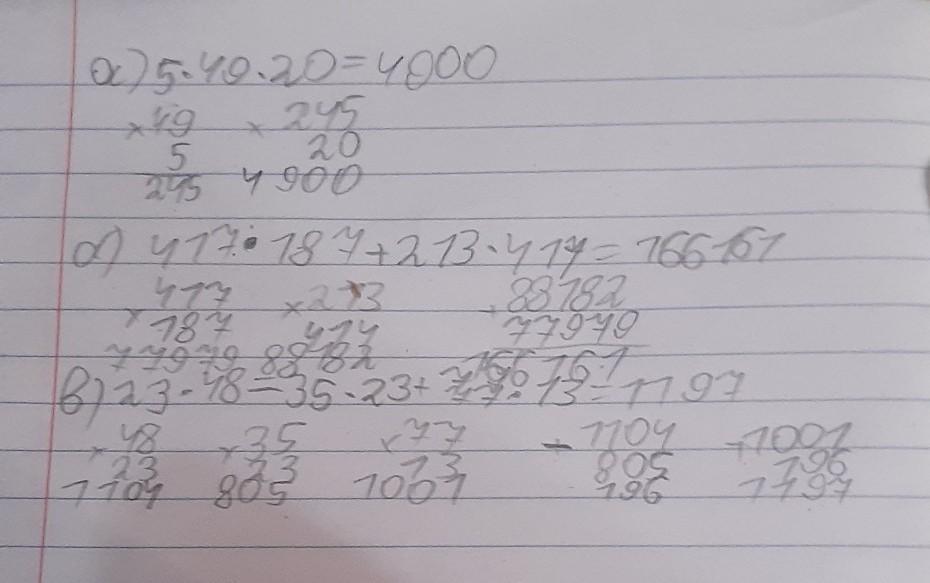 а) 5·49·20=4900
×49 ×245
5 20
245 4900
б) 417·187+213·414=166161
×417 ×213 +88182
187 414 77979
77979 88182 166161
в) 23·48-35·23+77·13=1197
×48 ×35 ×77 -1104 +1001
23 23 13 805 196
1104 805 1001 196 1197